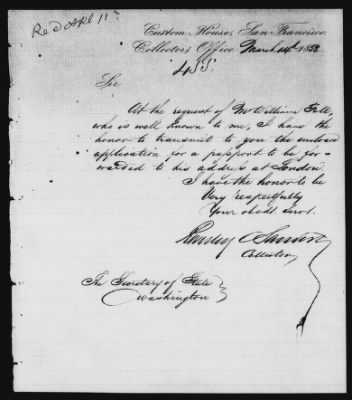 Rec'd Apl 11.
Custom House, San Francisco
Collector's Office March 14th 1853
Sir
At the request of Mr William Fall,
who is well known to me, I have the
honor to transmit to you the enclosed
application for a passport to be for-
warded to his address at London.
I have the honor to be
Very respectfully
Your obedt servt.
Collector
The Secretary of State
Washington